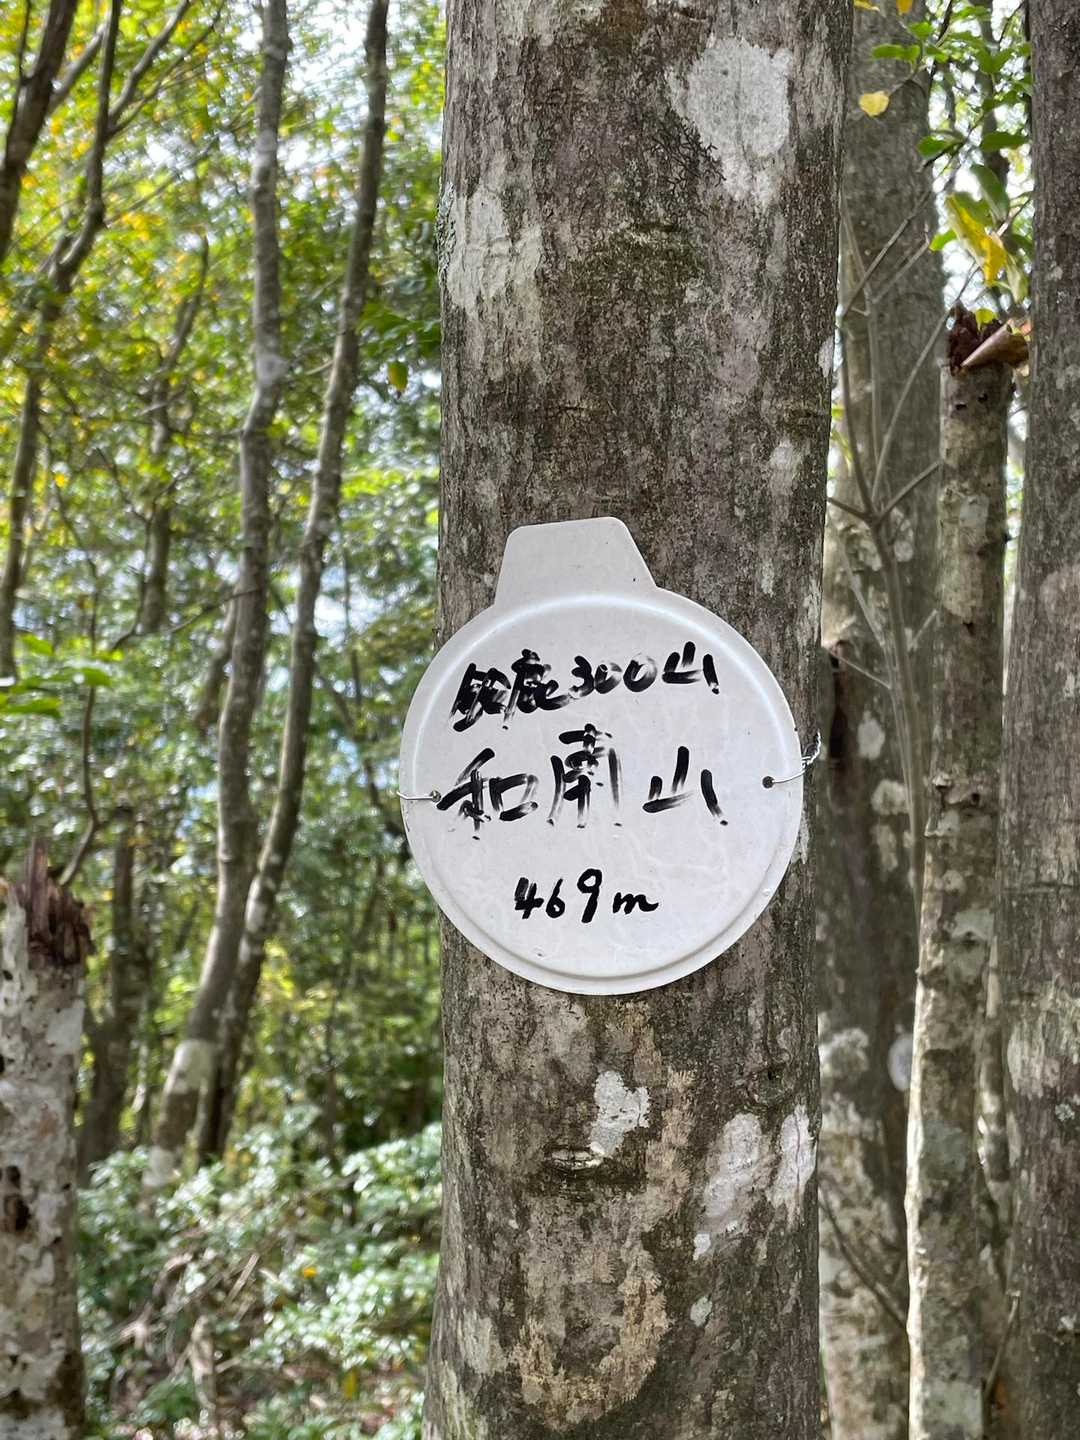 鈴鹿300山
和南山
469m